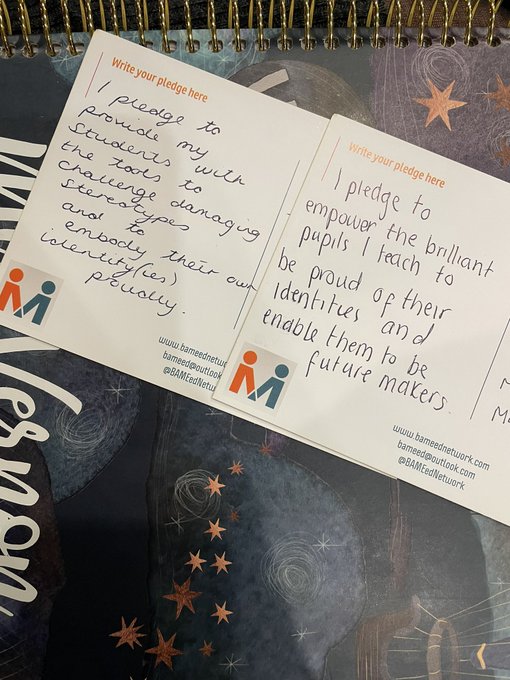 Write your pledge here
I pledge to
provide my
students with
the tools to
challenge damaging
stereotypes
and to
embody their own
identity(ies)
proudly.
www.bameednetwo
bameed@outlook
@BAMEedNetw
Write your pledge here
I pledge to
empower the brilliant
pupils I teach to
be proud of their
identities and
enable them to be
future makers.
www.bameednetwork.com
bameed@outlook.com
@BAMEedNetwork